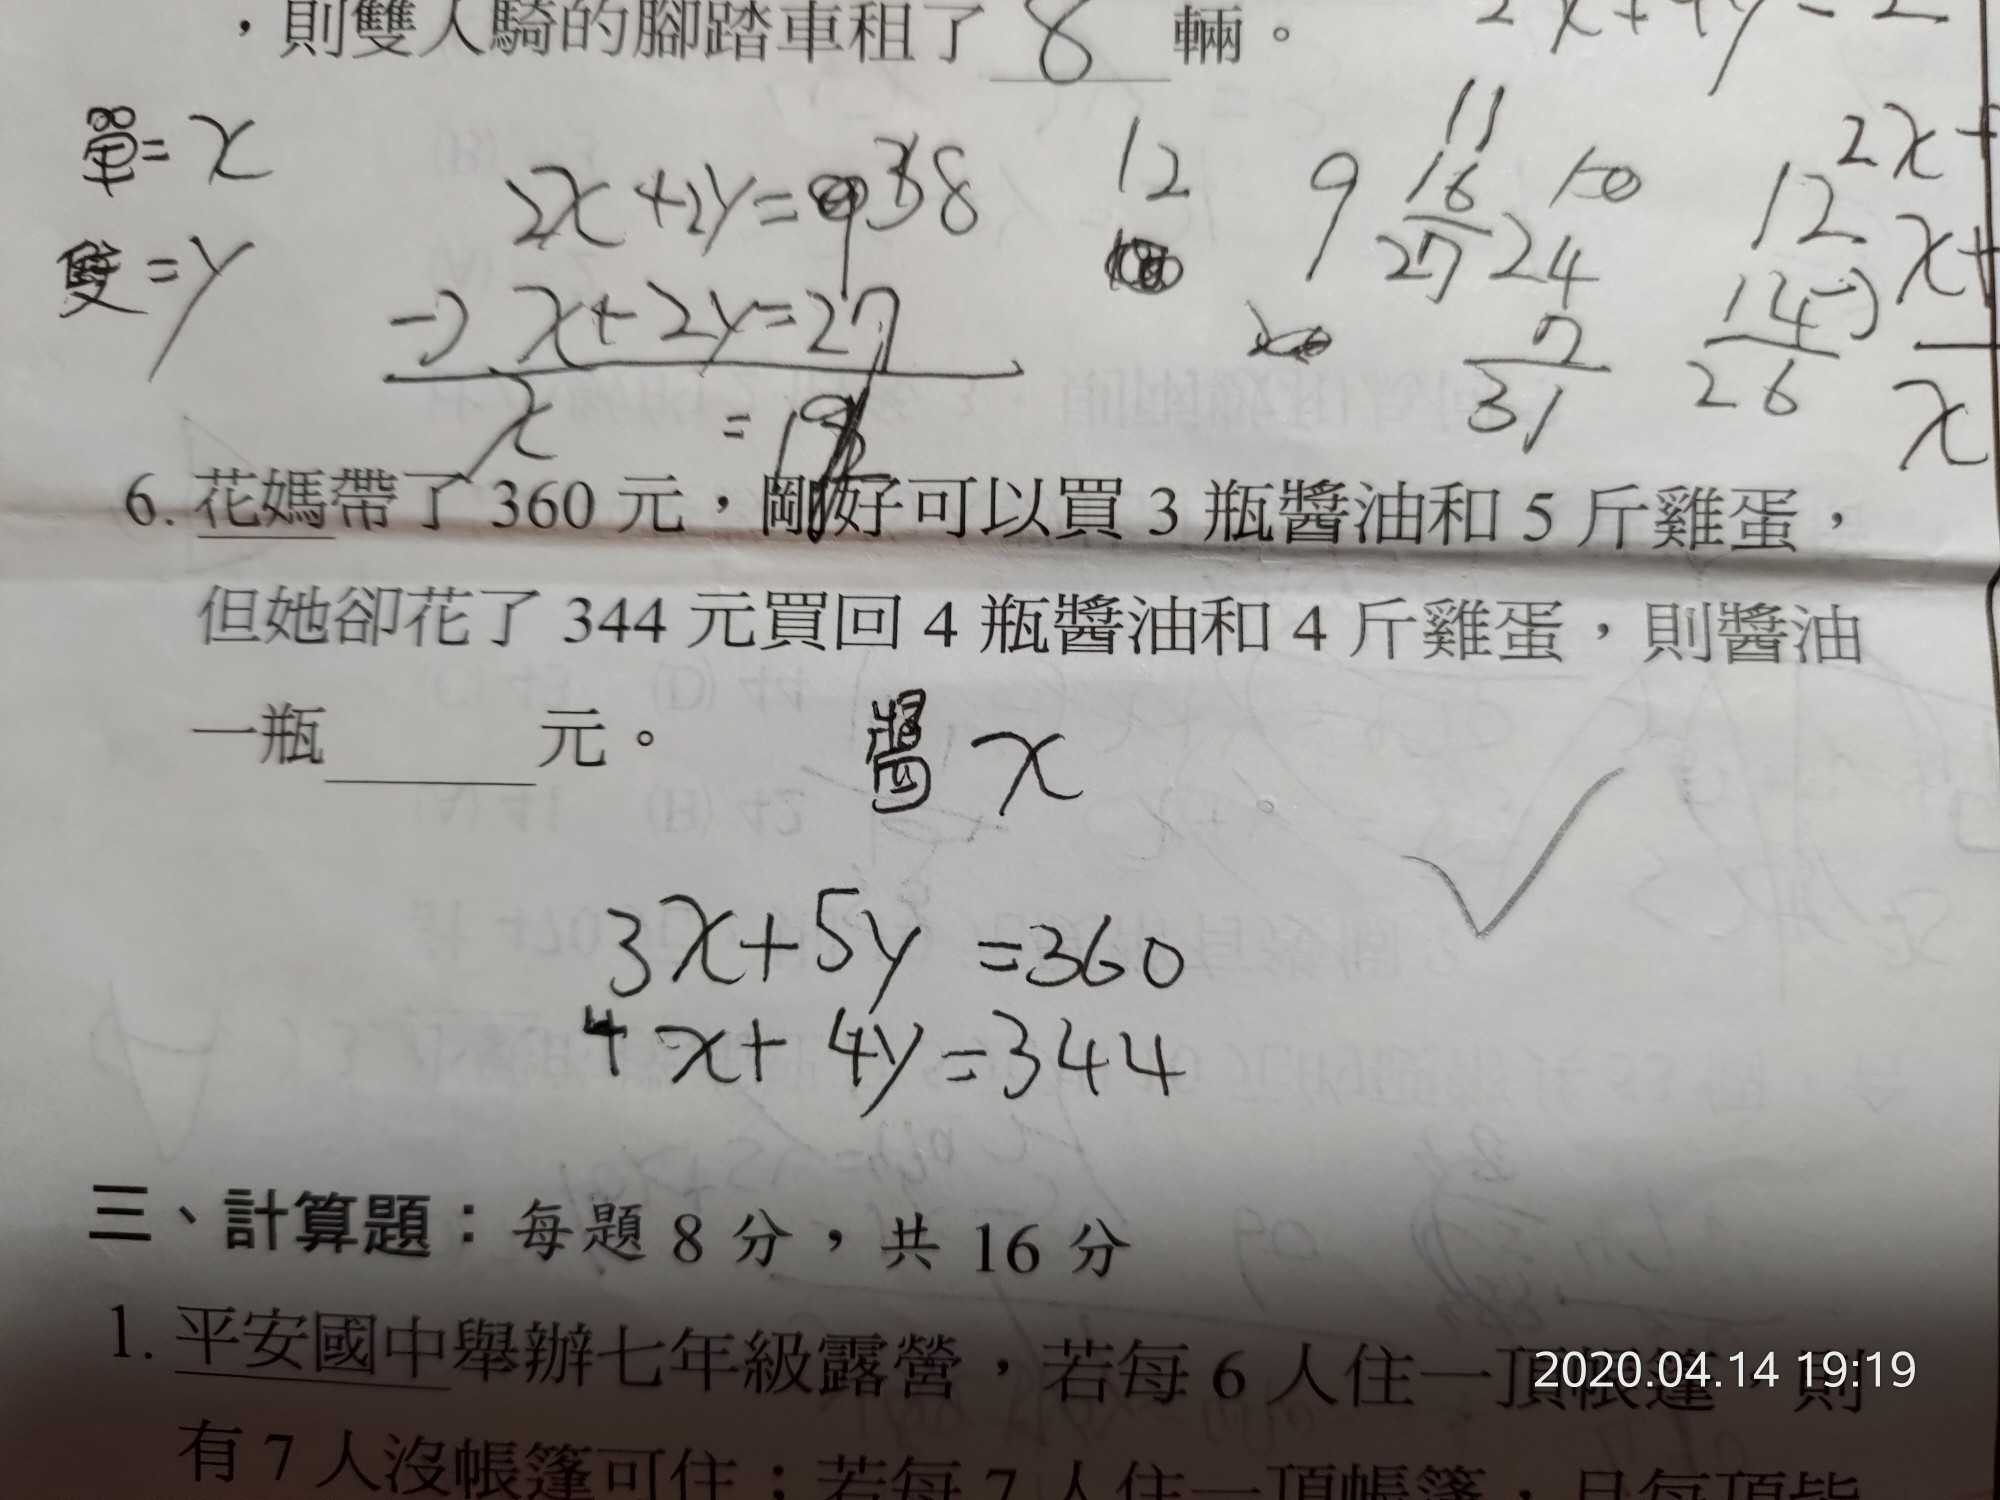 ，則雙人騎的腳踏車租了 8 輛。
單=x
雙=y
2x+2y=38
-) x+2y=27
x =
12
9
11
16
27
10
24
7
31
12
14
26
2x+
x+
x
6. 花媽帶了 360 元，剛好可以買 3 瓶醬油和 5 斤雞蛋，
但她卻花了 344 元買回 4 瓶醬油和 4 斤雞蛋，則醬油
一瓶 元。
醬 x
3x+5y =360
4x+4y=344
三、計算題：每題 8 分，共 16 分
1. 平安國中舉辦七年級露營，若每 6 人住一頂帳篷，則
有 7 人沒帳篷可住；若每 7 人住一頂帳篷，且每頂皆
2020.04.14 19:19